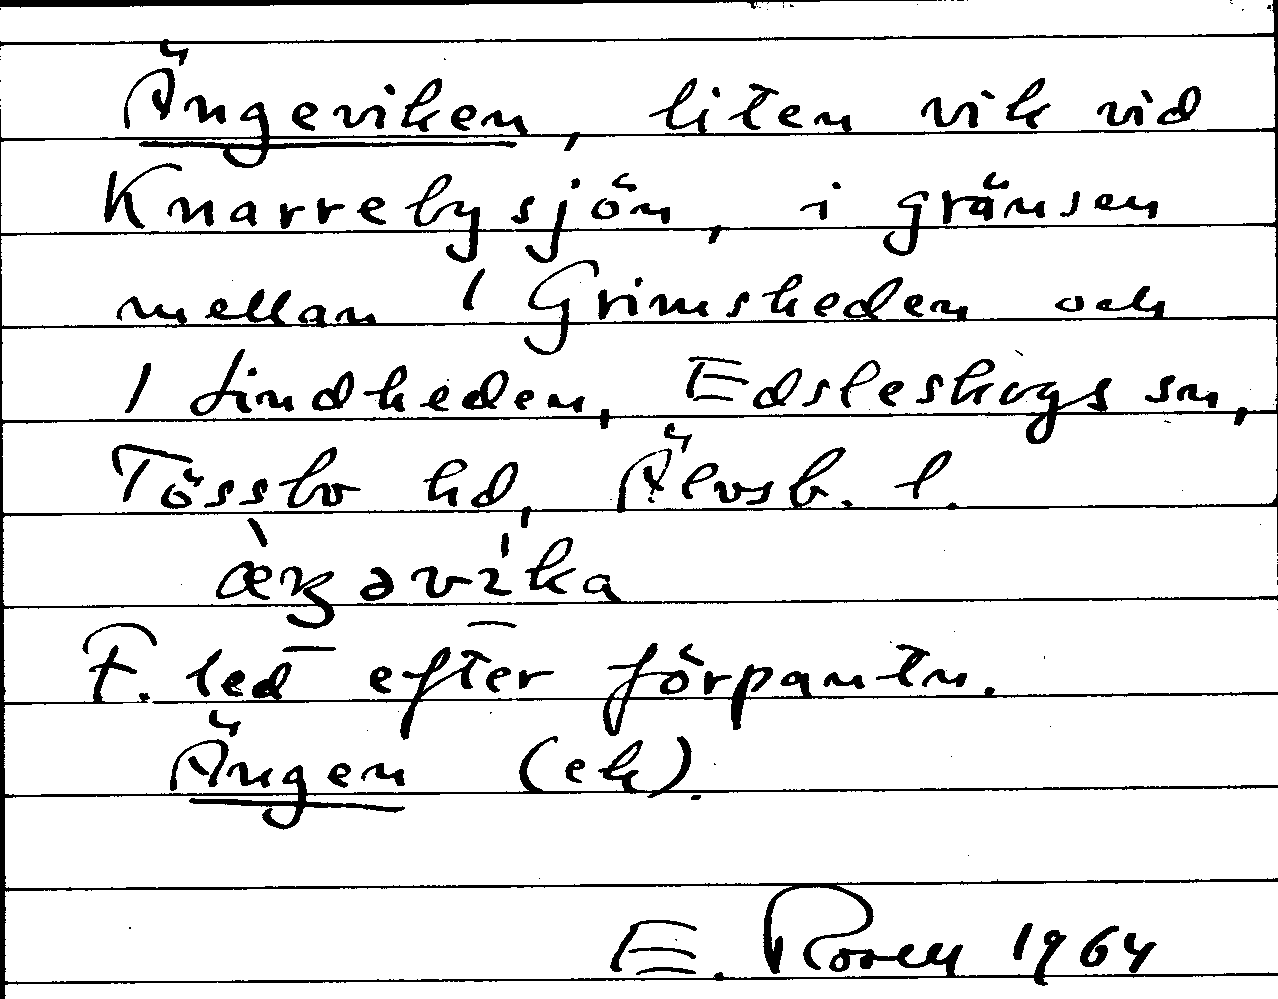 Ängeviken, liten vik vid
Knarrebysjön, i gränsen
mellan 1 Grimsheden och
1 Lindheden, Edsleskogs sn,
Tössbo hd, Älvsb. l.
æ̀ŋəvi̇́ka
F. led efter förpantn.
Ängen (ek).
E. Rosell 1964